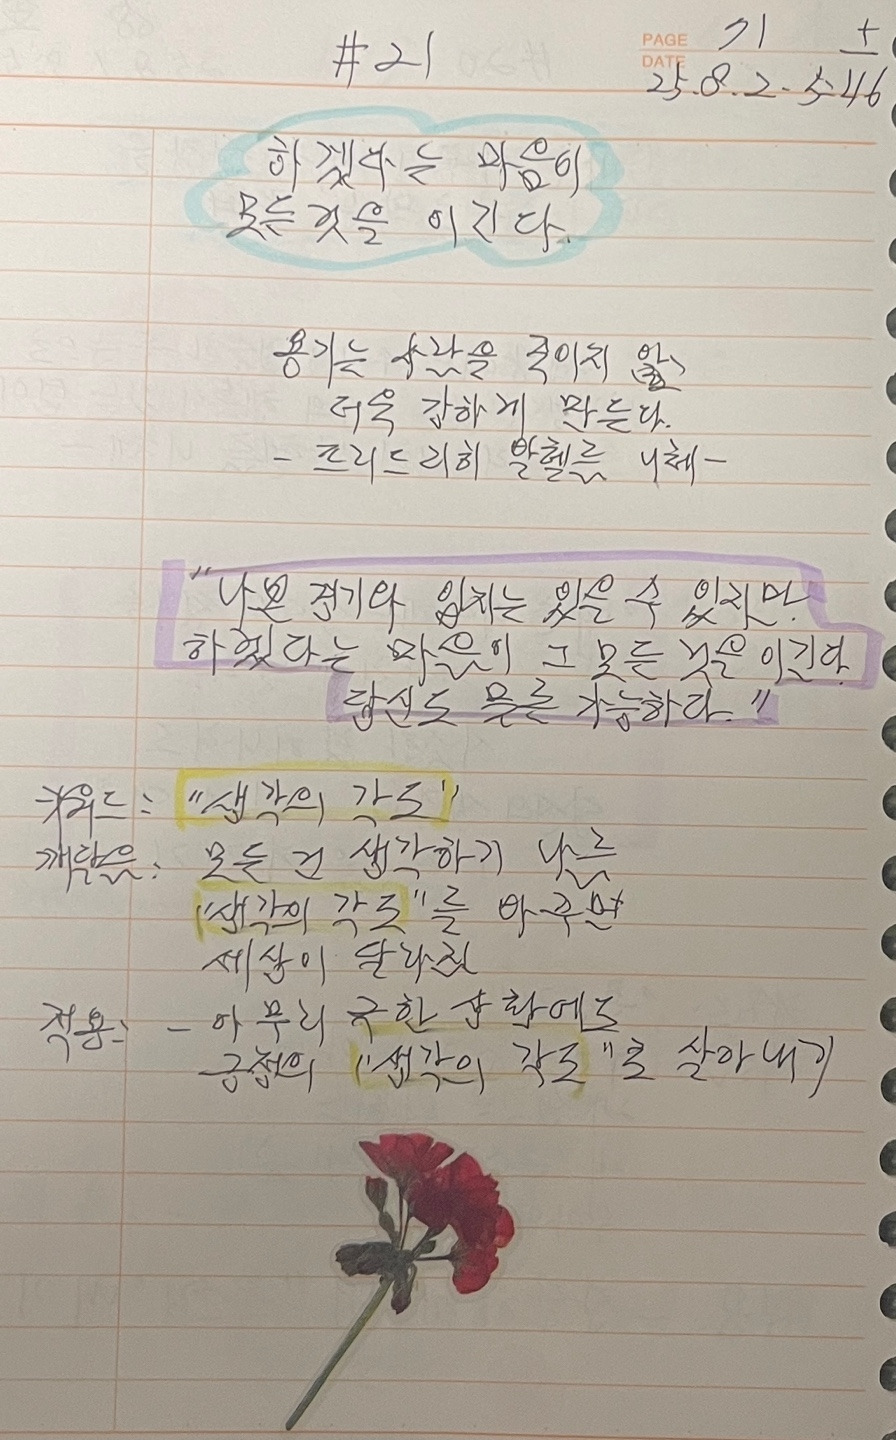 #21
PAGE 71 土
DATE 25.8.2. 5:46
하겠다는 마음이
모든것을 이긴다.
용기는 사람을 죽이지 않고
더욱 강하게 만든다.
- 프리드리히 빌헬름 니체-
"나쁜 경기와 입지는 있을 수 있지만
하겠다는 마음이 그 모든 것을 이긴다.
당신도 물론 가능하다."
키워드: "생각의 각도"
깨달음: 모든 건 생각하기 나름
"생각의 각도"를 바꾸면
세상이 달라짐
적용: - 아무리 극한 상황에도
긍정의 "생각의 각도"로 살아내기